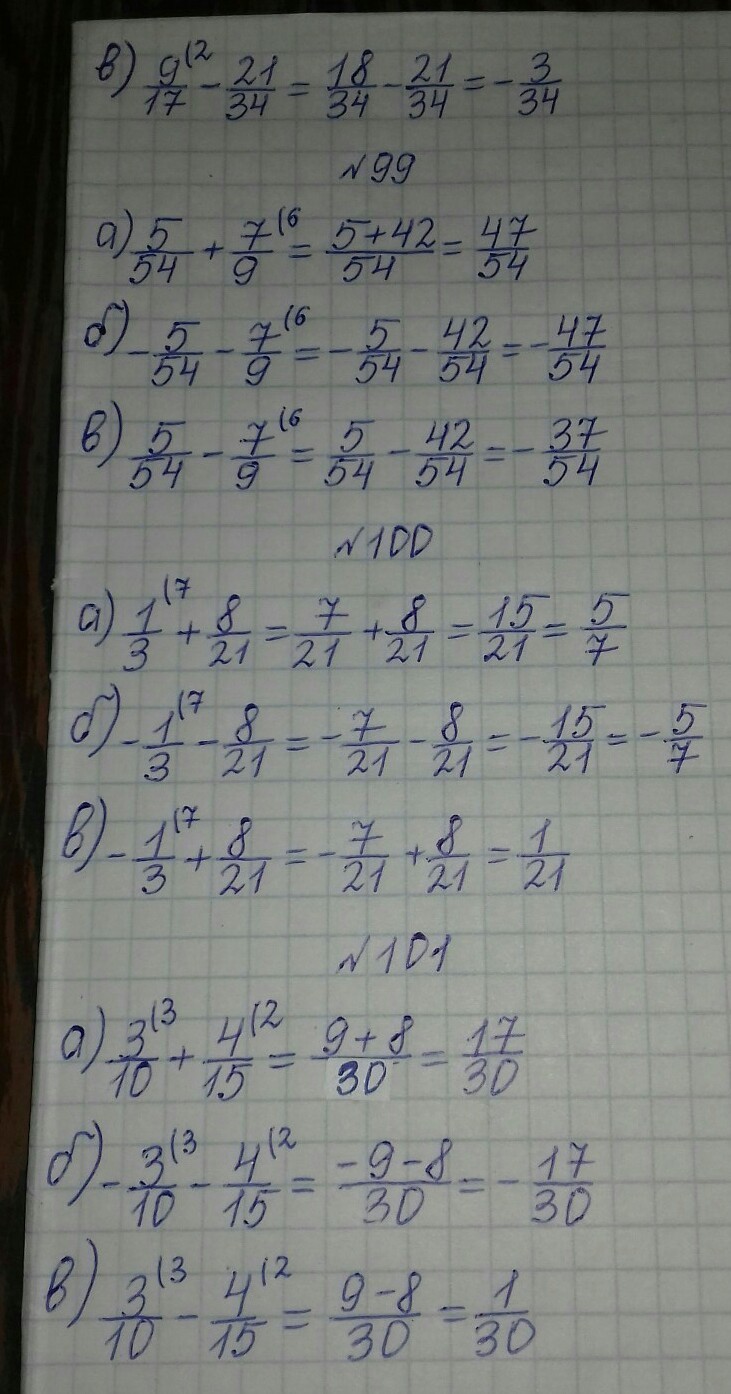 в) 9/17 (2 - 21/34 = 18/34 - 21/34 = - 3/34
№99
а) 5/54 + 7/9 (6 = 5+42/54 = 47/54
б) - 5/54 - 7/9 (6 = - 5/54 - 42/54 = - 47/54
в) 5/54 - 7/9 (6 = 5/54 - 42/54 = - 37/54
№100
а) 1/3 (7 + 8/21 = 7/21 + 8/21 = 15/21 = 5/7
б) - 1/3 (7 - 8/21 = - 7/21 - 8/21 = - 15/21 = - 5/7
в) - 1/3 (7 + 8/21 = - 7/21 + 8/21 = 1/21
№101
а) 3/10 (3 + 4/15 (2 = 9+8/30 = 17/30
б) - 3/10 (3 - 4/15 (2 = -9-8/30 = - 17/30
в) 3/10 (3 - 4/15 (2 = 9-8/30 = 1/30